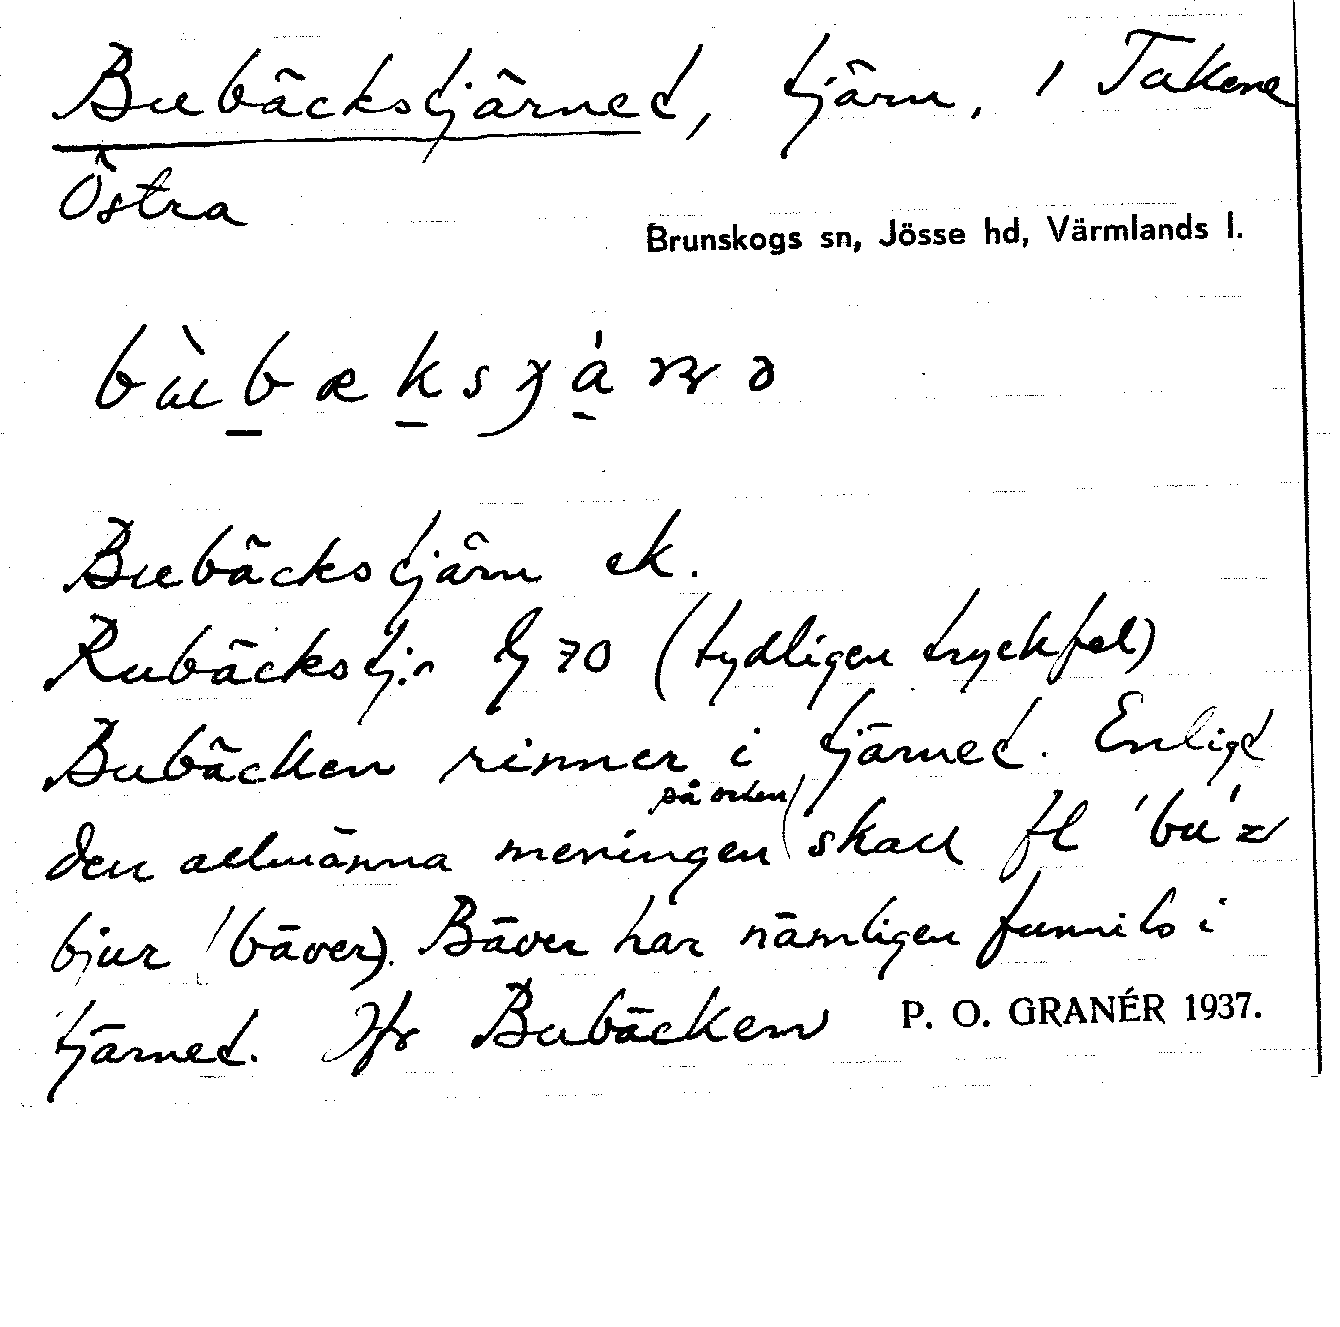 Bubäckstjärnet, tjärn, i Takene
Östra
Brunskogs sn, Jösse hd, Värmlands l.
Bubäckstjärn ek.
Rubäckstj:n 70 (tydligen tryckfel)
Bubäcken rinner i tjärnet. Enligt
på orten
den allmänna meningen skall fl 'bu' =
bjur (bäver). Bäver har nämligen funnits i
tjärnet. Jfr Bubäcken
P. O. GRANÉR 1937.